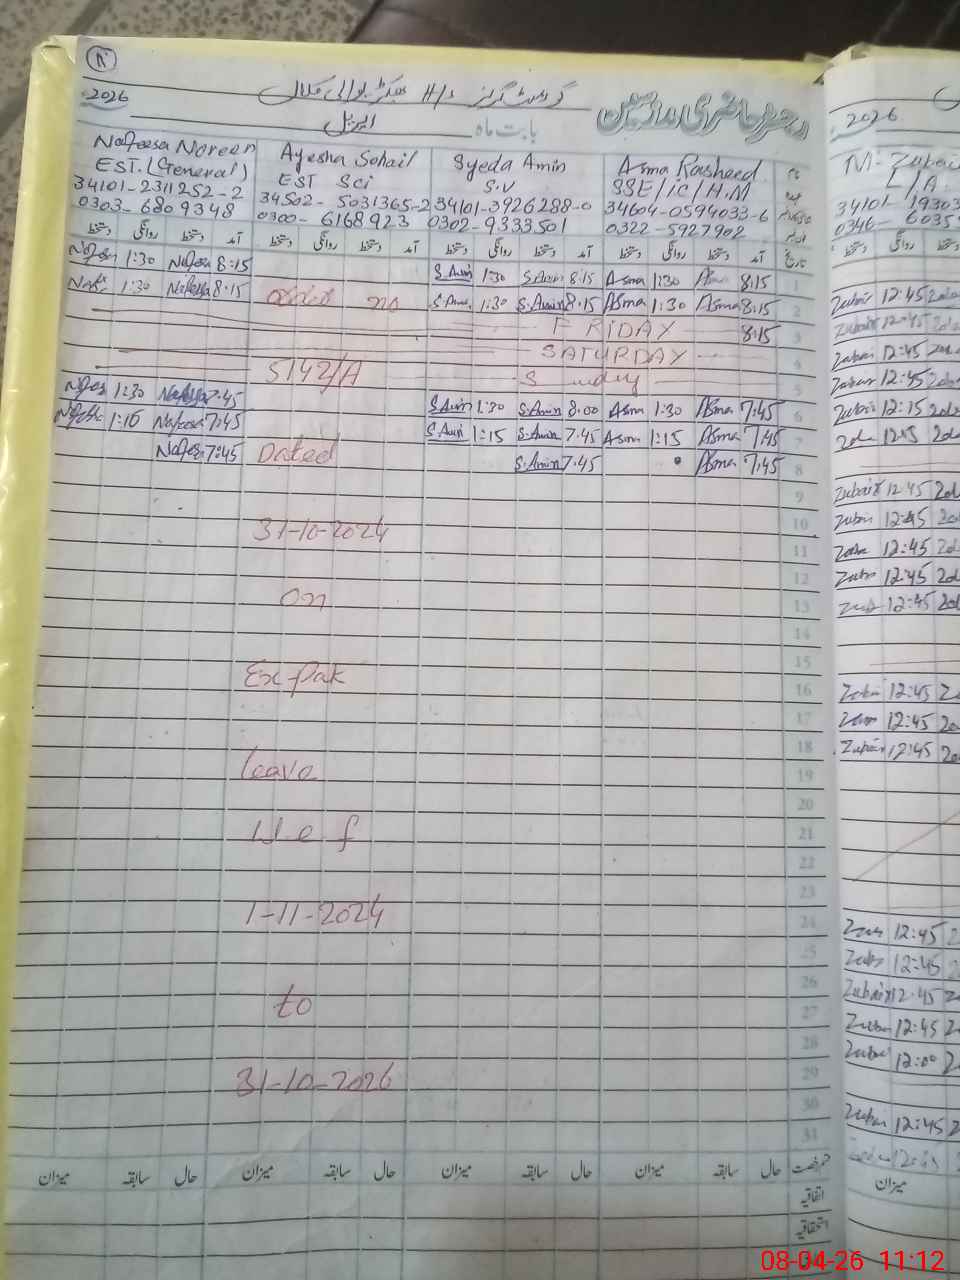 2026
گورنمنٹ گرلز H/S
دفتر حاضری ملازمین
بابت ماہ اپریل
نام
Asma Rasheed
Syeda Amin
Ayesha Sohail
Nafeesa Noreen
SSE/ic/H.M
S.V
EST Sci
EST.(General)
34604-0594033-6
34101-3926288-0
34502-5031365-2
34101-2311252-2
0322-5927902
0302-9333501
0300-6168923
0303-6809348
تاریخ آمد دستخط روانگی دستخط آمد دستخط روانگی دستخط آمد دستخط روانگی دستخط آمد دستخط روانگی دستخط
1 8:15 Asma 1:30 Asma 8:15 S.Amin 1:30 S.Amin 8:15 Nafeesa 1:30 Nafeesa
2 8:15 Asma 1:30 Asma 8:15 S.Amin 1:30 S.Amin 8:15 Nafeesa 1:30
order no
3 8:15 FRIDAY
4 SATURDAY
5 Sunday
5142/A
6 7:45 Asma 1:30 Asma 8:00 S.Amin 1:30 S.Amin 7:45 Nafeesa 1:30 Nafees
7 7:45 Asma 1:15 Asma 7:45 S.Amin 1:15 S.Amin 7:45 Nafeesa 1:15
8 7:45 Asma 7:45 S.Amin 7:45 Nafees
Dated
9
10
31-10-2024
11
12
13
on
14
15
16
Ex-Pak
17
18
19
leave
20
21
W.e.f
22
23
24
1-11-2024
25
26
27
to
28
29
31-10-2026
30
31
قسم رخصت حال سابقہ میزان حال سابقہ میزان حال سابقہ میزان حال سابقہ میزان
اتفاقیہ
استحقاقیہ
2026
M. Zubair
L/A
34101
0346-6035
Zubair 12:45
Zubair 12:45
Zubair 12:45
Zubair 12:45
Zubair 12:15
12:15
Zubair 12:45
Zubair 12:45
12:45
Zubair 12:45
12:45
Zubair 12:45
12:45
Zubair 12:45
12:45
12:45
Zubair 12:45
Zubair 12:45
Zubair 12:00
Zubair 12:45
12:45
میزان
08-04-26 11:12